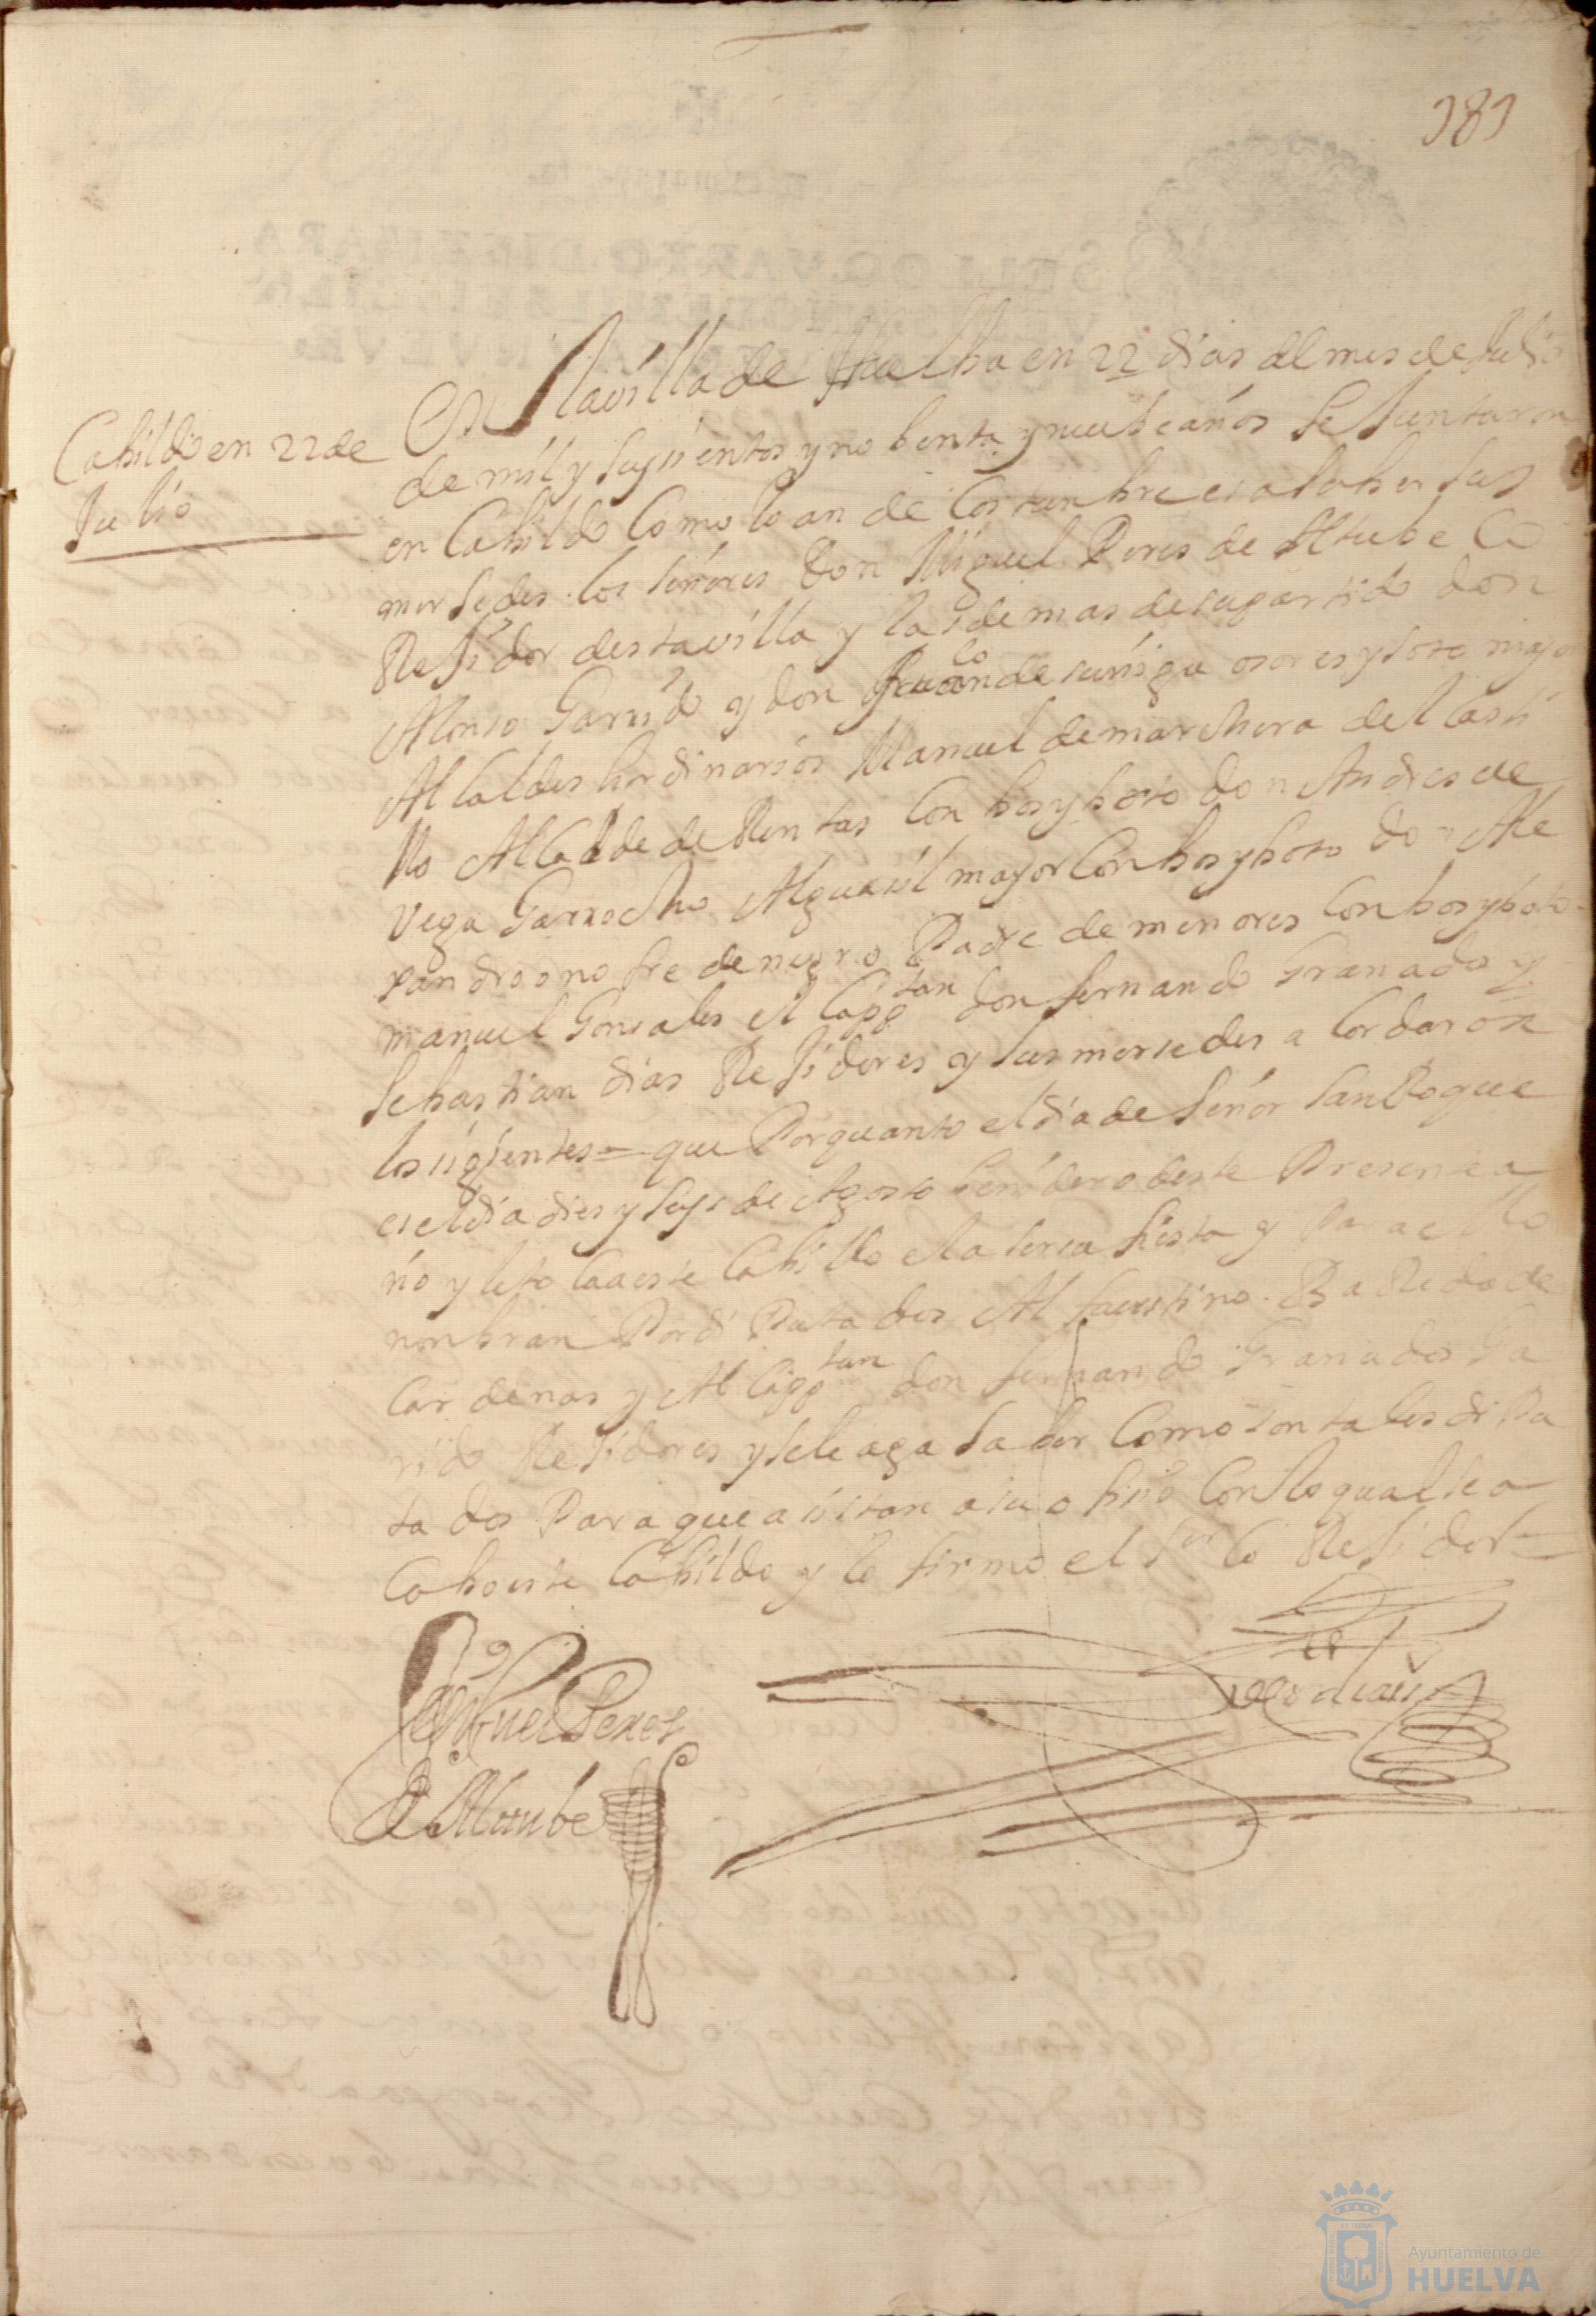 181
Cabildo en 22 de
Julio
En la villa de Huelba en 22 dias del mes de Julio
de mil y seysientos y nobenta y nuebe años se juntaron
en Cabildo como lo an de Costunbre es a saber sus
mersedes los señores Don Miguel Peres de Altube Co
Residor desta villa y las demas de su partido don
Alonso Garrido y don Juan de suñiga osores y soto mayor
Alcaldes hordinarios Manuel de marchena del Casti
llo Alcalde de Rentas Con bos y boto don Andres de
Vega Garrocho Alguasil mayor Con bos y boto don Ale
xandro onofre de negro Padre de menores Con bos y boto
manuel Gonsales el Capptan don fernando Granados y
sebastian dias Residores y sus mersedes a Cordaron
lo sigiente = que Porquanto el dia de señor san Roque
es el dia dies y seys de Agosto benidero deste Presente a
ño y le toca a este Cabildo la fiesta y Pa a ello
nonbran Por diPutados Al faustino Ba Redo de
Cardenas y Al Capptan don fernando Granados Ga
rido Residores y se le aga saber Como son tales diPu
tados Para que asistan a su ofisio Con lo qual se a
Cabo este Cabildo y lo firmo el Sor Co Residor =
Miguel Peres
de Altube
Ayuntamiento de
HUELVA